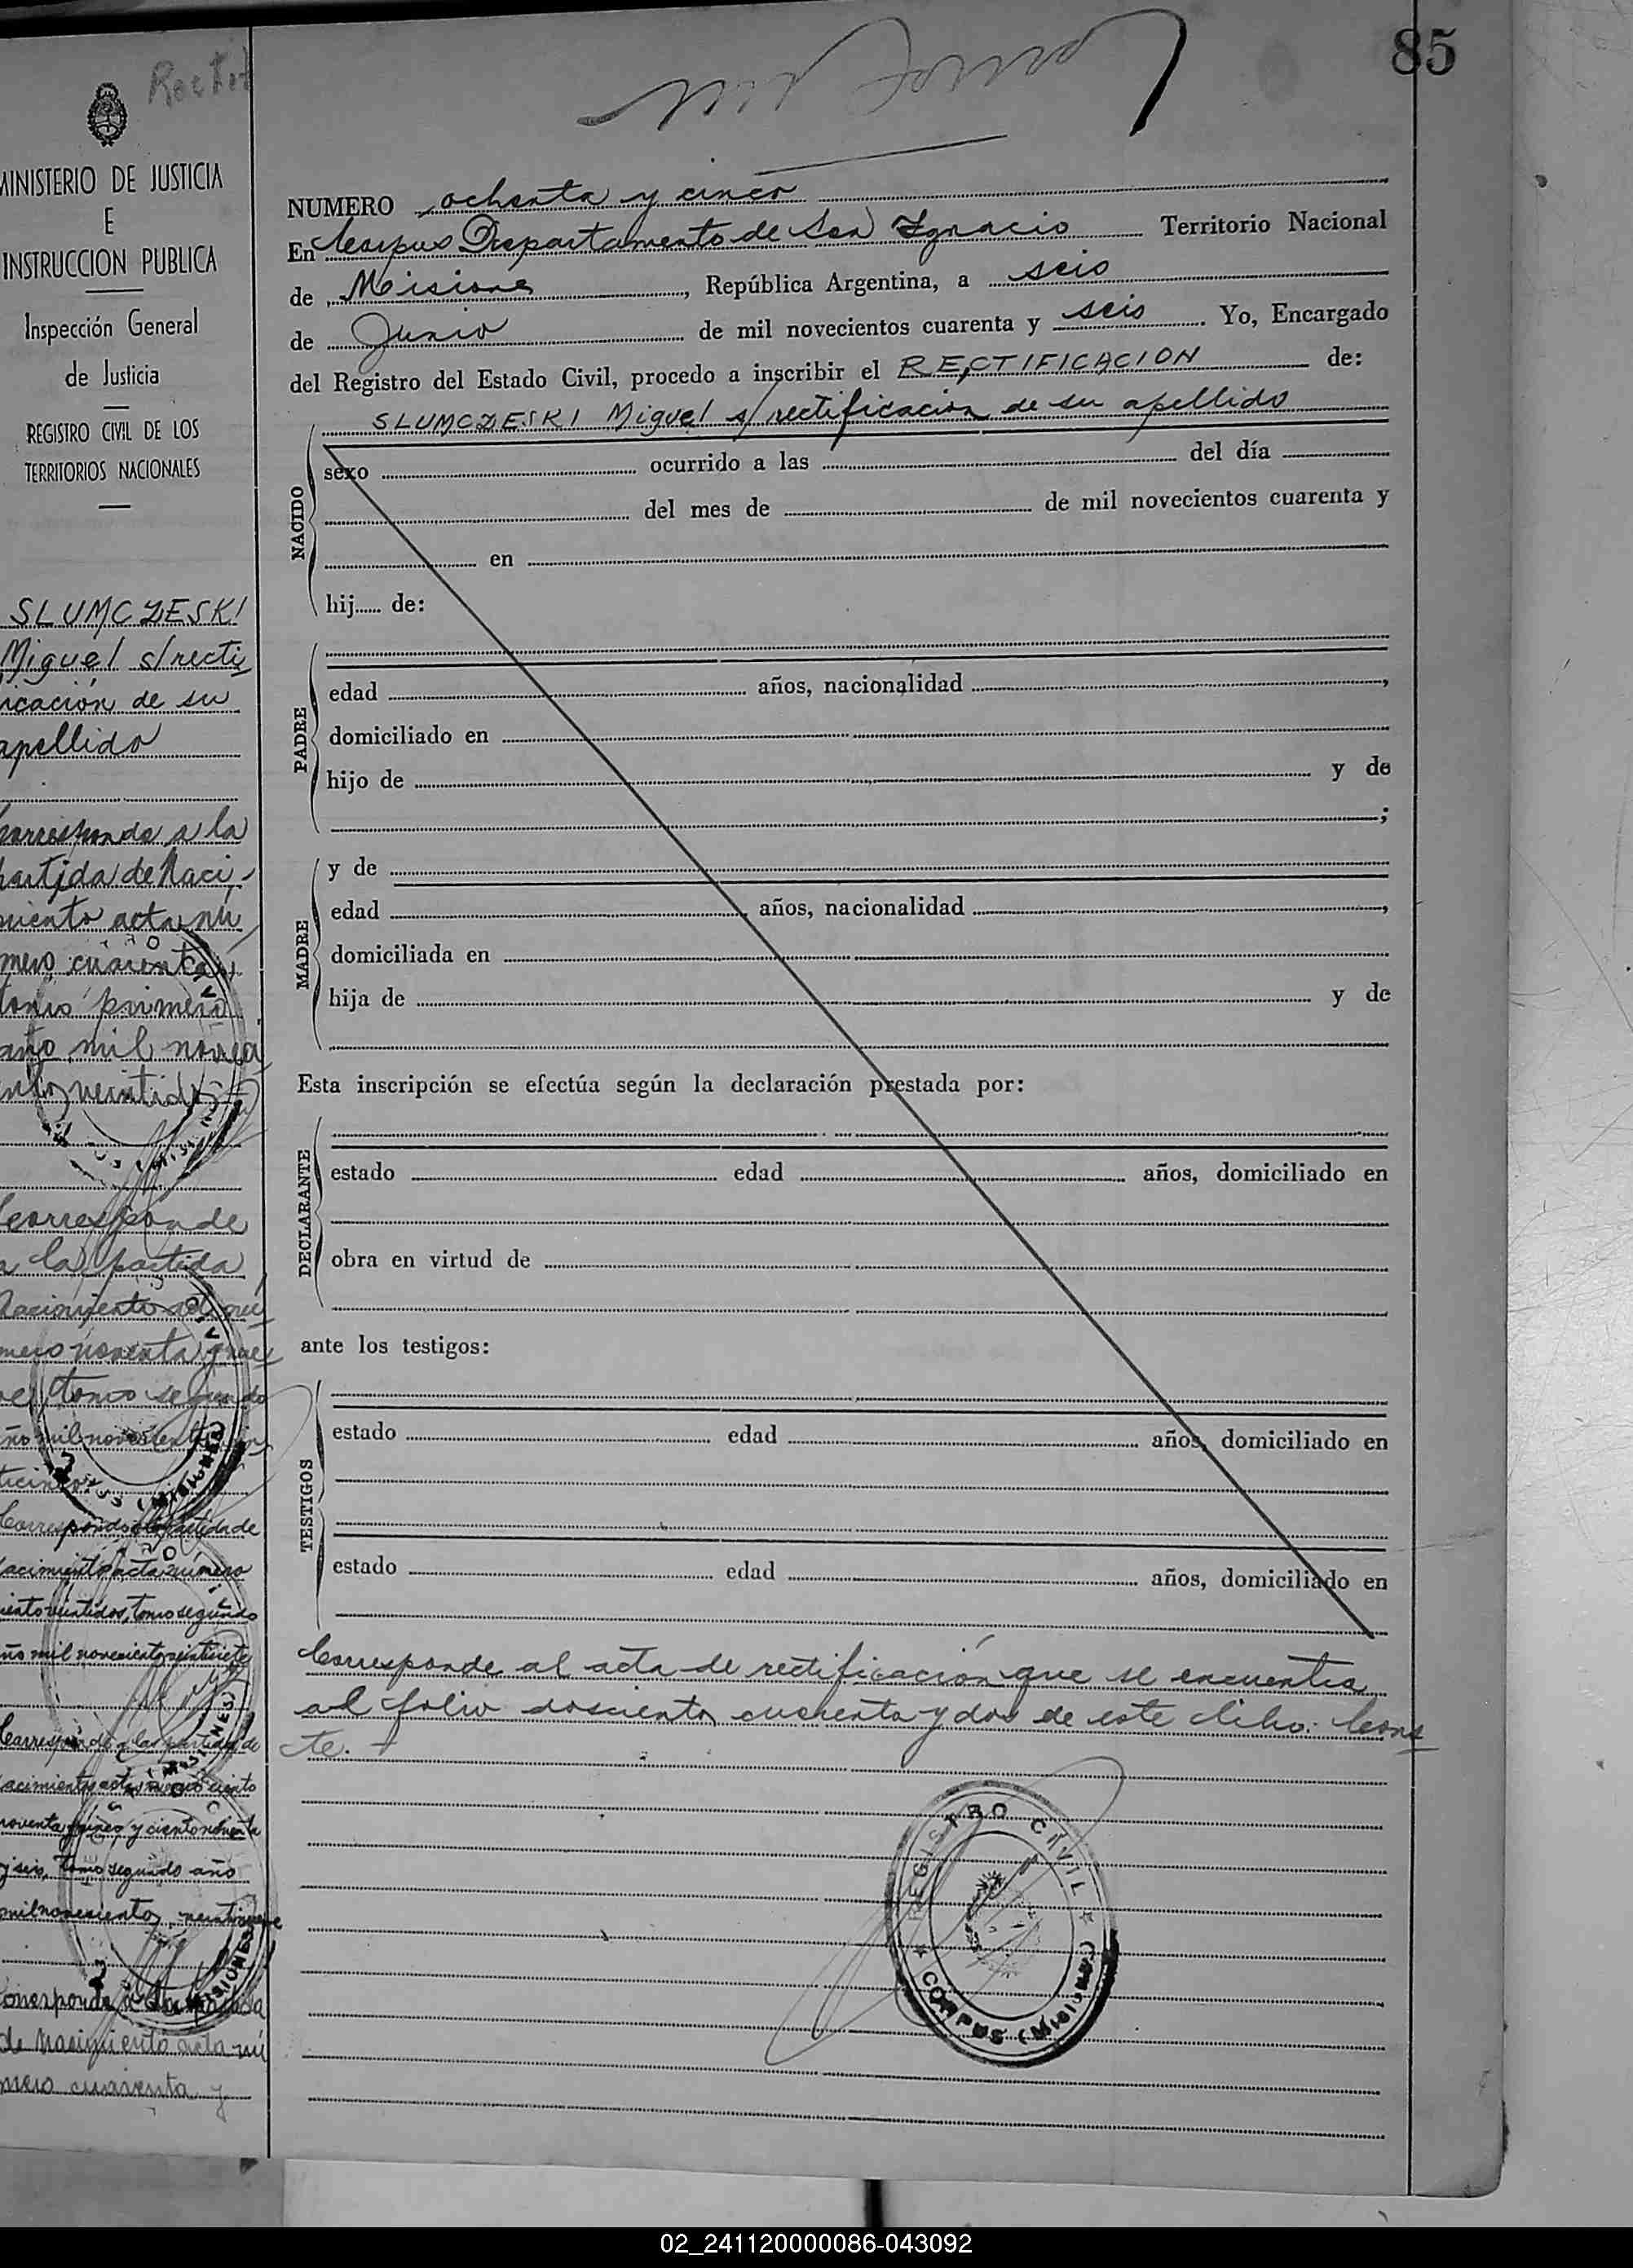 85
Rectif
MINISTERIO DE JUSTICIA
E
INSTRUCCION PUBLICA
Inspección General
de Justicia
REGISTRO CIVIL DE LOS
TERRITORIOS NACIONALES
SLUMCZESKI
Miguel s/recti
icación de su
apellido
Corresponde a la
partida de Naci-
miento acta nú
mero cuarenta y
tomo primero
año mil noveci
entos veintidos
Corresponde
a la partida
Nacimiento acta nú
mero noventa y nue
ve tomo segundo
año mil novecientos vein
ticinco
Corresponde a la partida de
nacimiento acta número
ciento veintidos, tomo segundo
año mil novecientos veintisiete
Corresponde a las partidas de
nacimientos actas número ciento
noventa y cinco y ciento noventa
y seis, tomo segundo año
mil novecientos veintinueve
Corresponde a la partida
de Nacimiento acta nú
mero cuarenta y
NUMERO ochenta y cinco
En Corpus Departamento de San Ignacio Territorio Nacional
de Misiones, República Argentina, a seis
de Junio de mil novecientos cuarenta y seis. Yo, Encargado
del Registro del Estado Civil, procedo a inscribir el RECTIFICACION de:
SLUMCZESKI Miguel s/rectificación de su apellido
NACIDO
sexo ocurrido a las del día
del mes de de mil novecientos cuarenta y
en
hij...... de:
PADRE
edad años, nacionalidad ,
domiciliado en
hijo de y de
;
MADRE
y de
edad años, nacionalidad ,
domiciliada en
hija de y de
Esta inscripción se efectúa según la declaración prestada por:
DECLARANTE
estado edad años, domiciliado en
obra en virtud de
ante los testigos:
TESTIGOS
estado edad años, domiciliado en
estado edad años, domiciliado en
Corresponde al acta de rectificación que se encuentra
al folio doscientos cuarenta y dos de este libro: Cons
te. -
REGISTRO CIVIL
CORPUS (MISIONES)
02_241120000086-043092